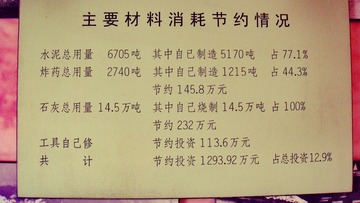 主要材料消耗节约情况
水泥总用量 6705吨 其中自己制造5170吨 占77.1%
炸药总用量 2740吨 其中自己制造1215吨 占44.3%
节约145.8万元
石灰总用量14.5万吨 其中自己烧制14.5万吨 占100%
节约232万元
工具自己修 节约投资113.6万元
共计 节约投资1293.92万元 占总投资12.9%